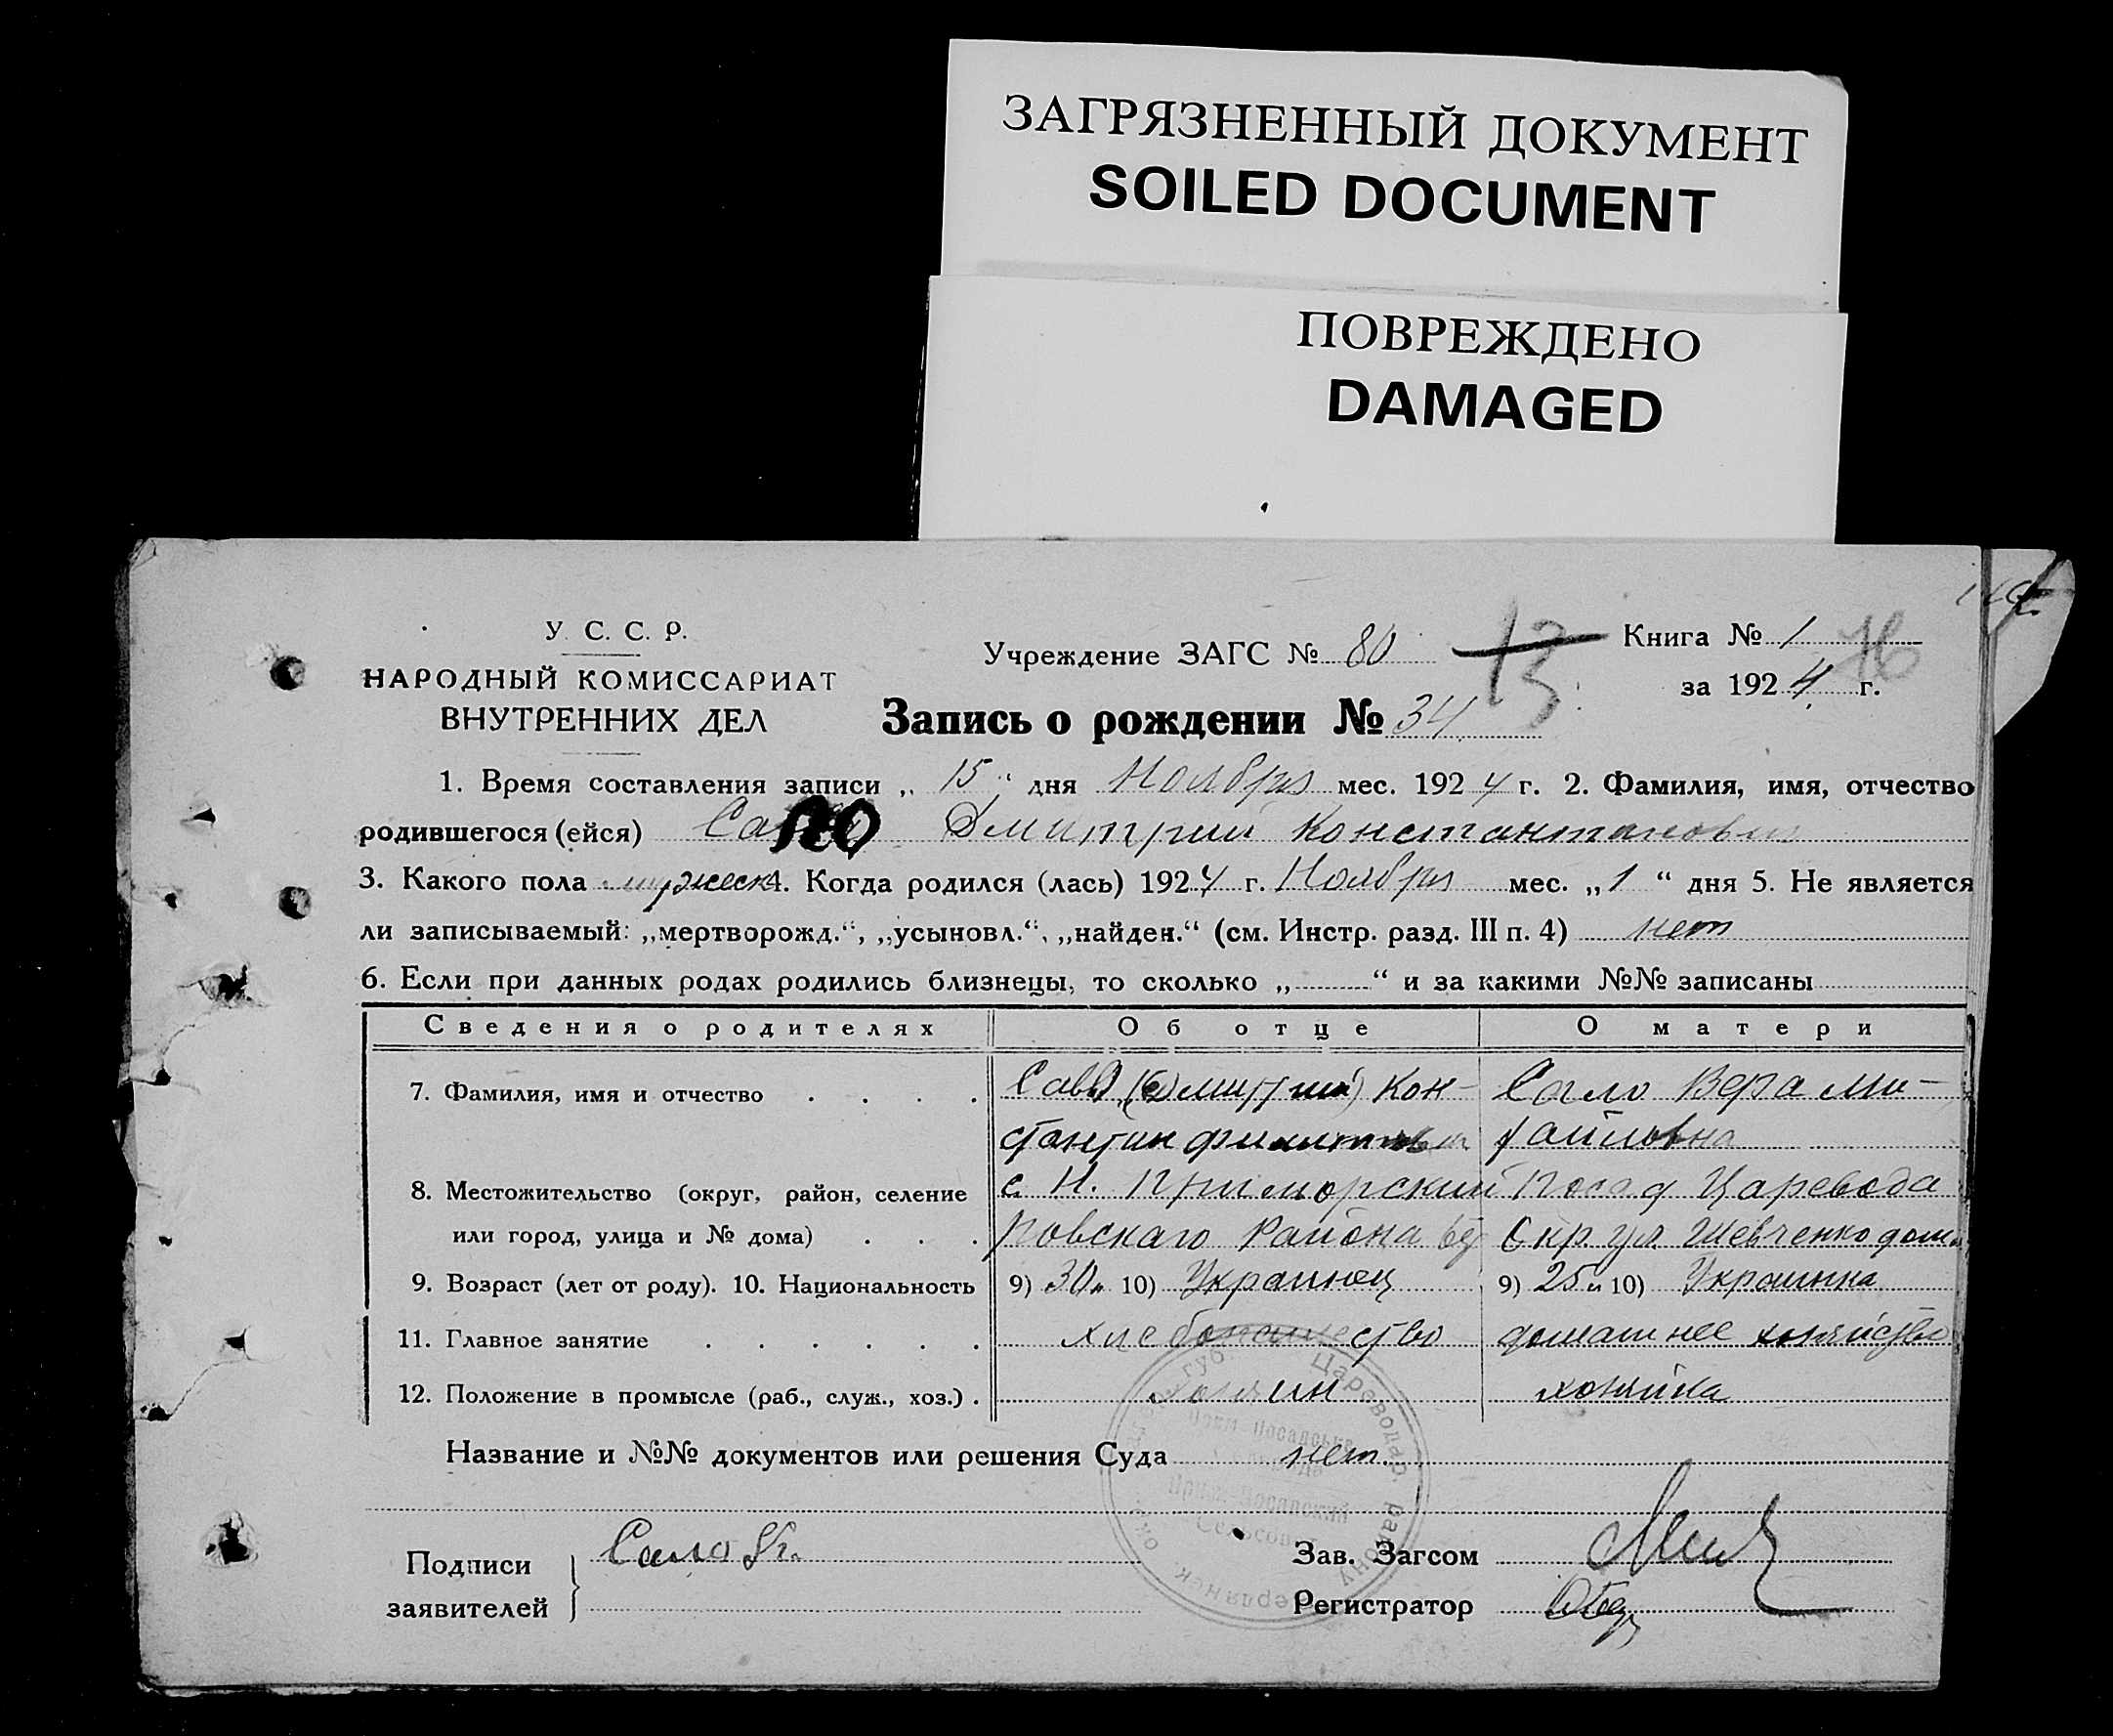 ЗАГРЯЗНЕННЫЙ ДОКУМЕНТ
SOILED DOCUMENT
ПОВРЕЖДЕНО
DAMAGED
У. С. С. Р.
НАРОДНЫЙ КОМИССАРИАТ
ВНУТРЕННИХ ДЕЛ
Учреждение ЗАГС № 80
13
Книга № 1
16
за 1924 г.
Запись о рождении № 34
1. Время составления записи „ 15 " дня Ноября мес. 1924 г. 2. Фамилия, имя, отчество
родившегося (ейся) Дмитрий Константинович
3. Какого пола мужеск 4. Когда родился (лась) 1924 г. Ноября мес. „ 1 “ дня 5. Не является
ли записываемый: „мертворожд.“, „усыновл.“, „найден.“ (см. Инстр. разд. III п. 4) нет
6. Если при данных родах родились близнецы, то сколько „ “ и за какими №№ записаны
Сведения о родителях Об отце О матери
7. Фамилия, имя и отчество . . . . (Дмитрий) Кон- Сало Вера Ми-
стантин хайловна
8. Местожительство (округ, район, селение с. Н. Приморский Посад Царевода
или город, улица и № дома) . . . ровскаго Района Бер Окр. ул. Шевченко дом
9. Возраст (лет от роду). 10. Национальность 9) 30 л. 10) Украинец 9) 25 л. 10) Украинка
11. Главное занятие . . . . . . хлебопашество домашнее хозяйство
12. Положение в промысле (раб., служ., хоз.) . хозяин хозяйка
Название и №№ документов или решения Суда нет.
губ. Цареводар. району
Прим-Посадский
Сельсовет
Подписи
заявителей
Сало К.
Зав. Загсом
Регистратор